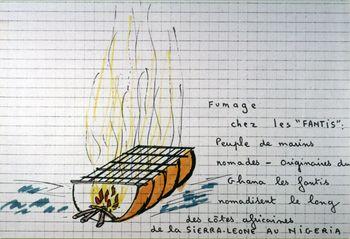 Fumage
chez les "FANTIS":
Peuple de marins
nomades - Originaires du
Ghana les fantis
nomadisent le long
des côtes africaines
de la SIERRA-LEONE AU NIGERIA